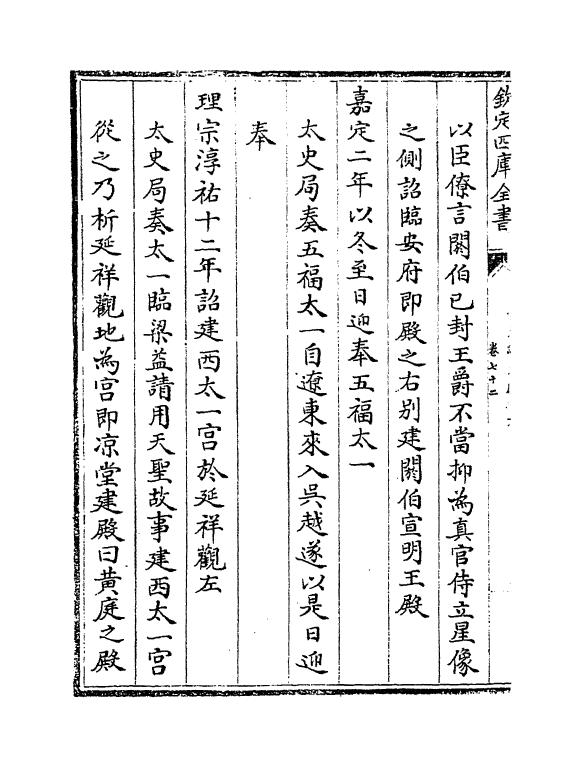 欽定四庫全書
卷七十二
以臣僚言閼伯已封王爵不當抑為真官侍立星像
之側詔臨安府即殿之右别建閼伯宣明王殿
嘉定二年以冬至日迎奉五福太一
太史局奏五福太一自遼東來入吳越遂以是日迎
奉
理宗淳祐十二年詔建西太一宫於延祥觀左
太史局奏太一臨梁益請用天聖故事建西太一宫
從之乃析延祥觀地為宫即凉堂建殿曰黄庭之殿